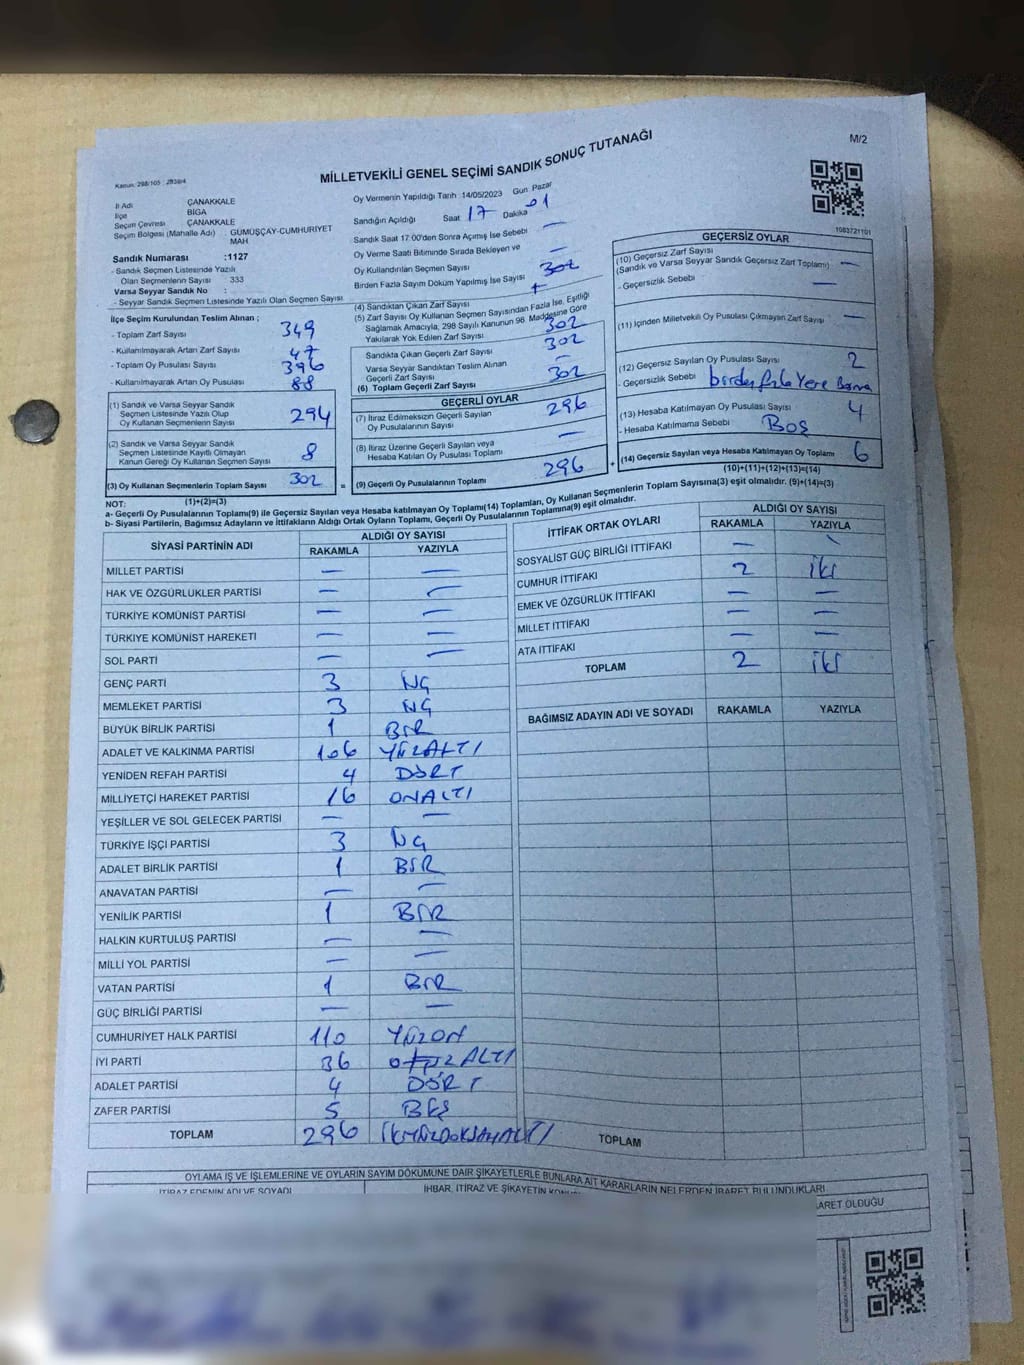 M/2
Kanun: 298/105 : 2839/4
MİLLETVEKİLİ GENEL SEÇİMİ SANDIK SONUÇ TUTANAĞI
1083721101
İl Adı ÇANAKKALE
İlçe BİGA
Seçim Çevresi ÇANAKKALE
Seçim Bölgesi (Mahalle Adı) : GÜMÜŞÇAY-CUMHURİYET MAH
Sandık Numarası :1127
- Sandık Seçmen Listesinde Yazılı
Olan Seçmenlerin Sayısı : 333
Varsa Seyyar Sandık No :
- Seyyar Sandık Seçmen Listesinde Yazılı Olan Seçmen Sayısı
İlçe Seçim Kurulundan Teslim Alınan ;
- Toplam Zarf Sayısı 349
- Kullanılmayarak Artan Zarf Sayısı 47
- Toplam Oy Pusulası Sayısı 396
- Kullanılmayarak Artan Oy Pusulası 88
(1) Sandık ve Varsa Seyyar Sandık
Seçmen Listesinde Yazılı Olup
Oy Kullanan Seçmenlerin Sayısı 294
(2) Sandık ve Varsa Seyyar Sandık
Seçmen Listesinde Kayıtlı Olmayan
Kanun Gereği Oy Kullanan Seçmen Sayısı 8
(3) Oy Kullanan Seçmenlerin Toplam Sayısı 302
(1)+(2)=(3)
Oy Vermenin Yapıldığı Tarih :14/05/2023 Gün :Pazar
Sandığın Açıldığı Saat 17 Dakika 01
Sandık Saat 17:00'den Sonra Açımış İse Sebebi —
Oy Verme Saati Bitiminde Sırada Bekleyen ve
Oy Kullandırılan Seçmen Sayısı —
Birden Fazla Sayım Döküm Yapılmış İse Sayısı
(4) Sandıktan Çıkan Zarf Sayısı 302
(5) Zarf Sayısı Oy Kullanan Seçmen Sayısından Fazla İse, Eşitliği
Sağlamak Amacıyla, 298 Sayılı Kanunun 98. Maddesine Göre
Yakılarak Yok Edilen Zarf Sayısı
Sandıkta Çıkan Geçerli Zarf Sayısı 302
Varsa Seyyar Sandıktan Teslim Alınan
Geçerli Zarf Sayısı —
(6) Toplam Geçerli Zarf Sayısı 302
GEÇERLİ OYLAR
(7) İtiraz Edilmeksizin Geçerli Sayılan
Oy Pusulalarının Sayısı 296
(8) İtiraz Üzerine Geçerli Sayılan veya
Hesaba Katılan Oy Pusulası Toplamı —
= (9) Geçerli Oy Pusulalarının Toplamı 296 +
GEÇERSİZ OYLAR
(10) Geçersiz Zarf Sayısı
(Sandık ve Varsa Seyyar Sandık Geçersiz Zarf Toplamı) —
- Geçersizlik Sebebi —
(11) İçinden Milletvekili Oy Pusulası Çıkmayan Zarf Sayısı —
(12) Geçersiz Sayılan Oy Pusulası Sayısı 2
- Geçersizlik Sebebi birden fazla Yere Basma
(13) Hesaba Katılmayan Oy Pusulası Sayısı 4
- Hesaba Katılmama Sebebi BOŞ
(14) Geçersiz Sayılan veya Hesaba Katılmayan Oy Toplamı 6
(10)+(11)+(12)+(13)=(14)
NOT:
a- Geçerli Oy Pusulalarının Toplamı(9) ile Geçersiz Sayılan veya Hesaba katılmayan Oy Toplamı(14) Toplamları, Oy Kullanan Seçmenlerin Toplam Sayısına(3) eşit olmalıdır. (9)+(14)=(3)
b- Siyasi Partilerin, Bağımsız Adayların ve İttifakların Aldığı Ortak Oyların Toplamı, Geçerli Oy Pusulalarının Toplamına(9) eşit olmalıdır.
SİYASİ PARTİNİN ADI ALDIĞI OY SAYISI
RAKAMLA YAZIYLA
MİLLET PARTİSİ — —
HAK VE ÖZGÜRLÜKLER PARTİSİ — —
TÜRKİYE KOMÜNİST PARTİSİ — —
TÜRKİYE KOMÜNİST HAREKETİ — —
SOL PARTİ — —
GENÇ PARTİ 3 ÜÇ
MEMLEKET PARTİSİ 3 ÜÇ
BÜYÜK BİRLİK PARTİSİ 1 BİR
ADALET VE KALKINMA PARTİSİ 106 YÜZALTI
YENİDEN REFAH PARTİSİ 4 DÖRT
MİLLİYETÇİ HAREKET PARTİSİ 16 ONALTI
YEŞİLLER VE SOL GELECEK PARTİSİ — —
TÜRKİYE İŞÇİ PARTİSİ 3 ÜÇ
ADALET BİRLİK PARTİSİ 1 BİR
ANAVATAN PARTİSİ — —
YENİLİK PARTİSİ 1 BİR
HALKIN KURTULUŞ PARTİSİ — —
MİLLİ YOL PARTİSİ — —
VATAN PARTİSİ 1 BİR
GÜÇ BİRLİĞİ PARTİSİ — —
CUMHURİYET HALK PARTİSİ 110 YÜZON
İYİ PARTİ 36 OTUZALTI
ADALET PARTİSİ 4 DÖRT
ZAFER PARTİSİ 5 BEŞ
TOPLAM 296 İKİYÜZDOKSANALTI
İTTİFAK ORTAK OYLARI ALDIĞI OY SAYISI
RAKAMLA YAZIYLA
SOSYALİST GÜÇ BİRLİĞİ İTTİFAKI — —
CUMHUR İTTİFAKI 2 İki
EMEK VE ÖZGÜRLÜK İTTİFAKI — —
MİLLET İTTİFAKI — —
ATA İTTİFAKI — —
TOPLAM 2 İki
BAĞIMSIZ ADAYIN ADI VE SOYADI RAKAMLA YAZIYLA
TOPLAM
OYLAMA İŞ VE İŞLEMLERİNE VE OYLARIN SAYIM DÖKÜMÜNE DAİR ŞİKAYETLERLE BUNLARA AİT KARARLARIN NELERDEN İBARET BULUNDUKLARI
İTİRAZ EDENİN ADI VE SOYADI İHBAR, İTİRAZ VE ŞİKAYETİN KONUSU
OLDUĞU